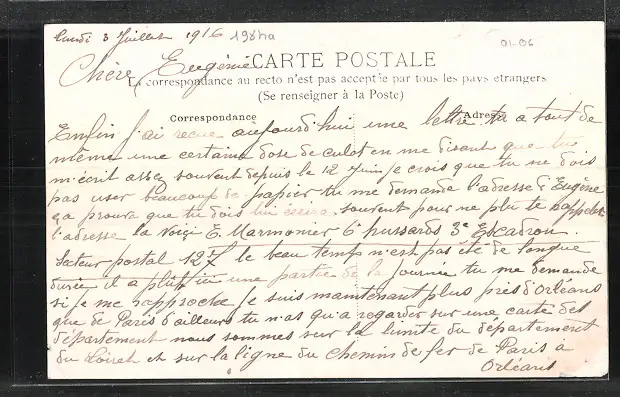 Lundi 3 Juillet 1916 198na
01-06
Chère Eugénie
CARTE POSTALE
La correspondance au recto n'est pas acceptée par tous les pays étrangers
(Se renseigner à la Poste)
Correspondance
Adresse
Enfin j'ai recue aujourd'hui une lettre. tu a tout de
même une certaine dose de culot en me disant que tu
m'écrit assez souvent depuis le 12 Juin je crois que tu ne dois
pas user beaucoup de papier tu me demande l'adresse d'Eugène
ça prouva que tu dois lui écrire souvent pour ne plu te rappeler
l'adresse la voici E. Marmonier 6e hussards 3e Escadron.
Secteur postal 127 le beau temps n'est pas été de longue
durée il a plut ici une partie de la journée tu me demande
si je me rapproche je suis maintenant plus près d'Orléans
que de Paris d'ailleurs tu n'as qu'a regarder sur une carte des
département nous sommes sur la limite du département
du Loiret et sur la ligne du chemin de fer de Paris à
Orléans